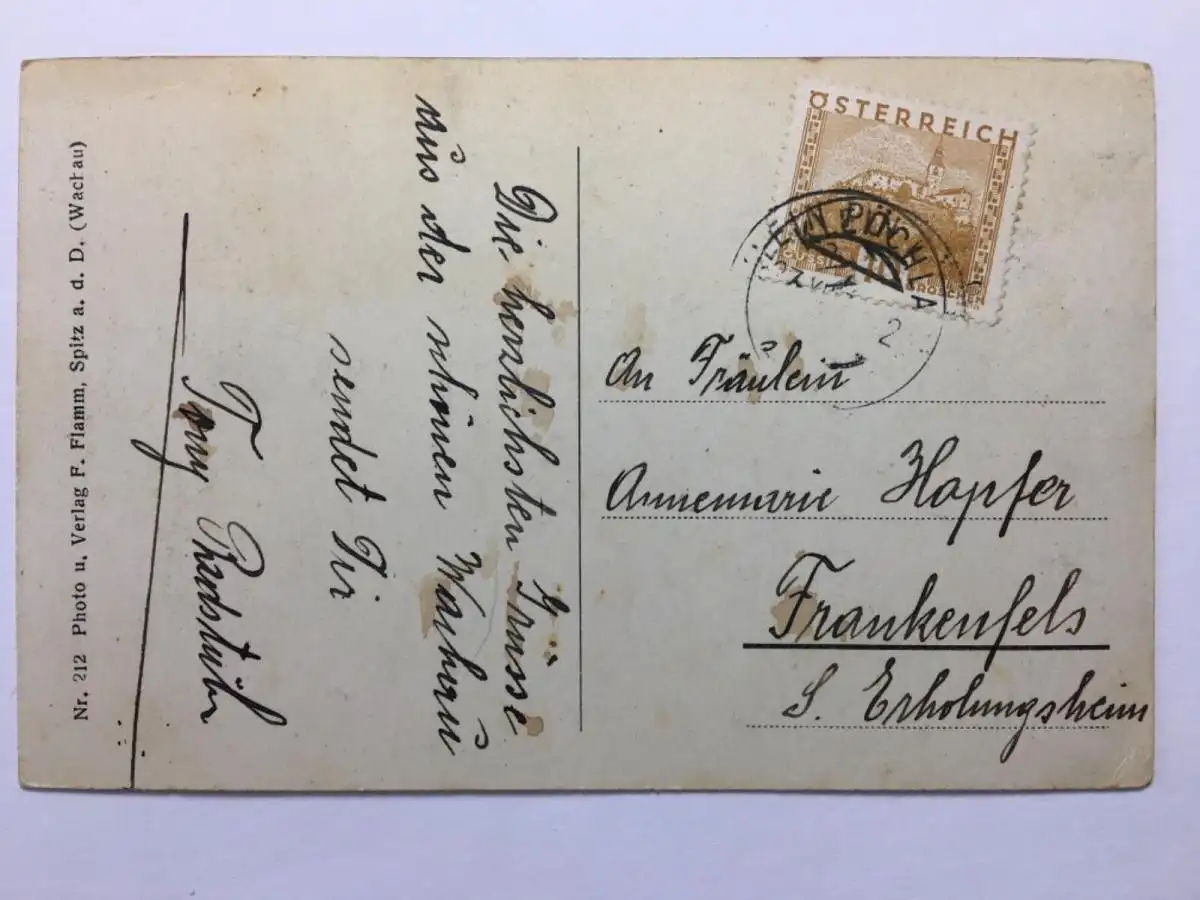 Nr. 212 Photo u. Verlag F. Flamm, Spitz a. d. D. (Wachau)
Die herzlichsten Grüsse
aus der schönen Wachau
sendet Dir
Tony
ÖSTERREICH
KLEIN PÖCHLA
2
An Fräulein
Annemarie Hopfer
Frankenfels
S. Erholungsheim